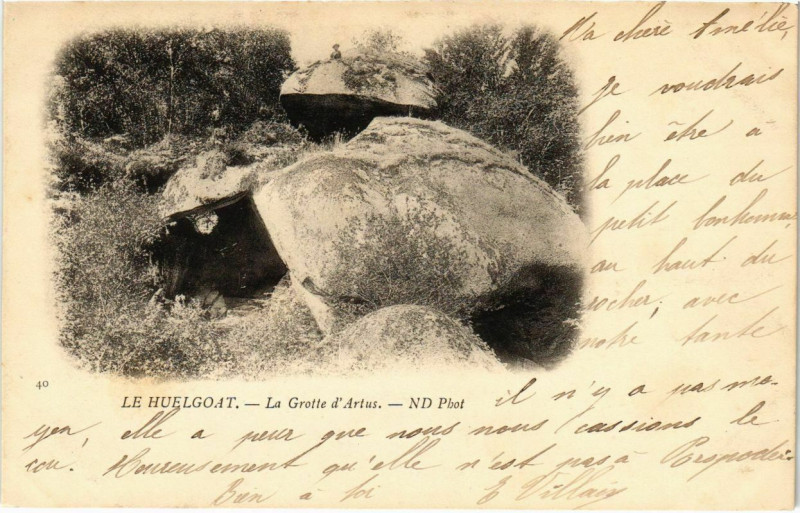 Ma chère Amélie,
je voudrais
bien être à
la place du
petit bonhomme,
au haut du
rocher; avec
notre tante
il n'y a pas mo-
yen, elle a peur que nous nous cassions le
cou. Heureusement qu'elle n'est pas à Rospoder.
Bien à toi E Villain
40
LE HUELGOAT. — La Grotte d'Artus. — ND Phot